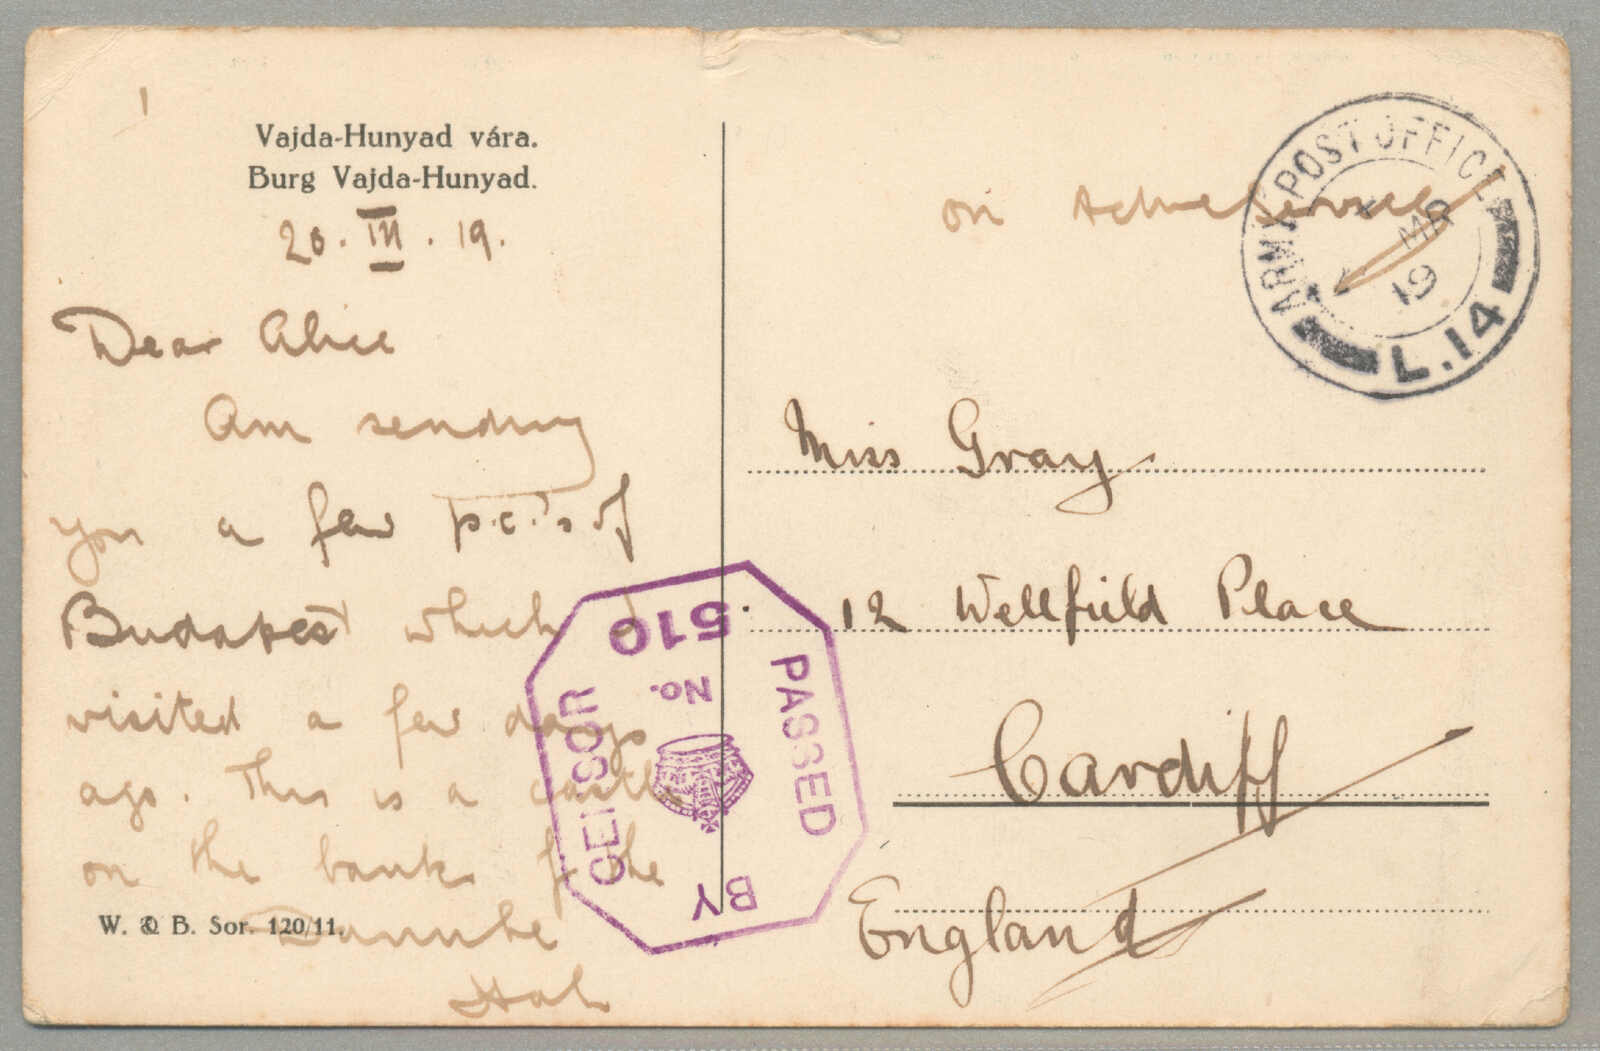 Vajda-Hunyad vára.
Burg Vajda-Hunyad.
20. III. 19.
Dear Alice
Am sending
you a few p.c.'s of
Budapest which I
visited a few days
ago. This is a castle
on the bank of the
Danube
Hal
W. & B. Sor. 120/11.
on Active Service
ARMY POST OFFICE
MR
19
L.14
Miss Gray
12 Wellfield Place
Cardiff
England
PASSED
BY
CENSOR
No.
510